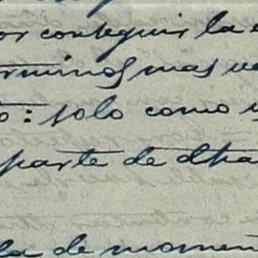 or conseguir la
terminos mas ve
o: solo como
parte de dha
la de momen